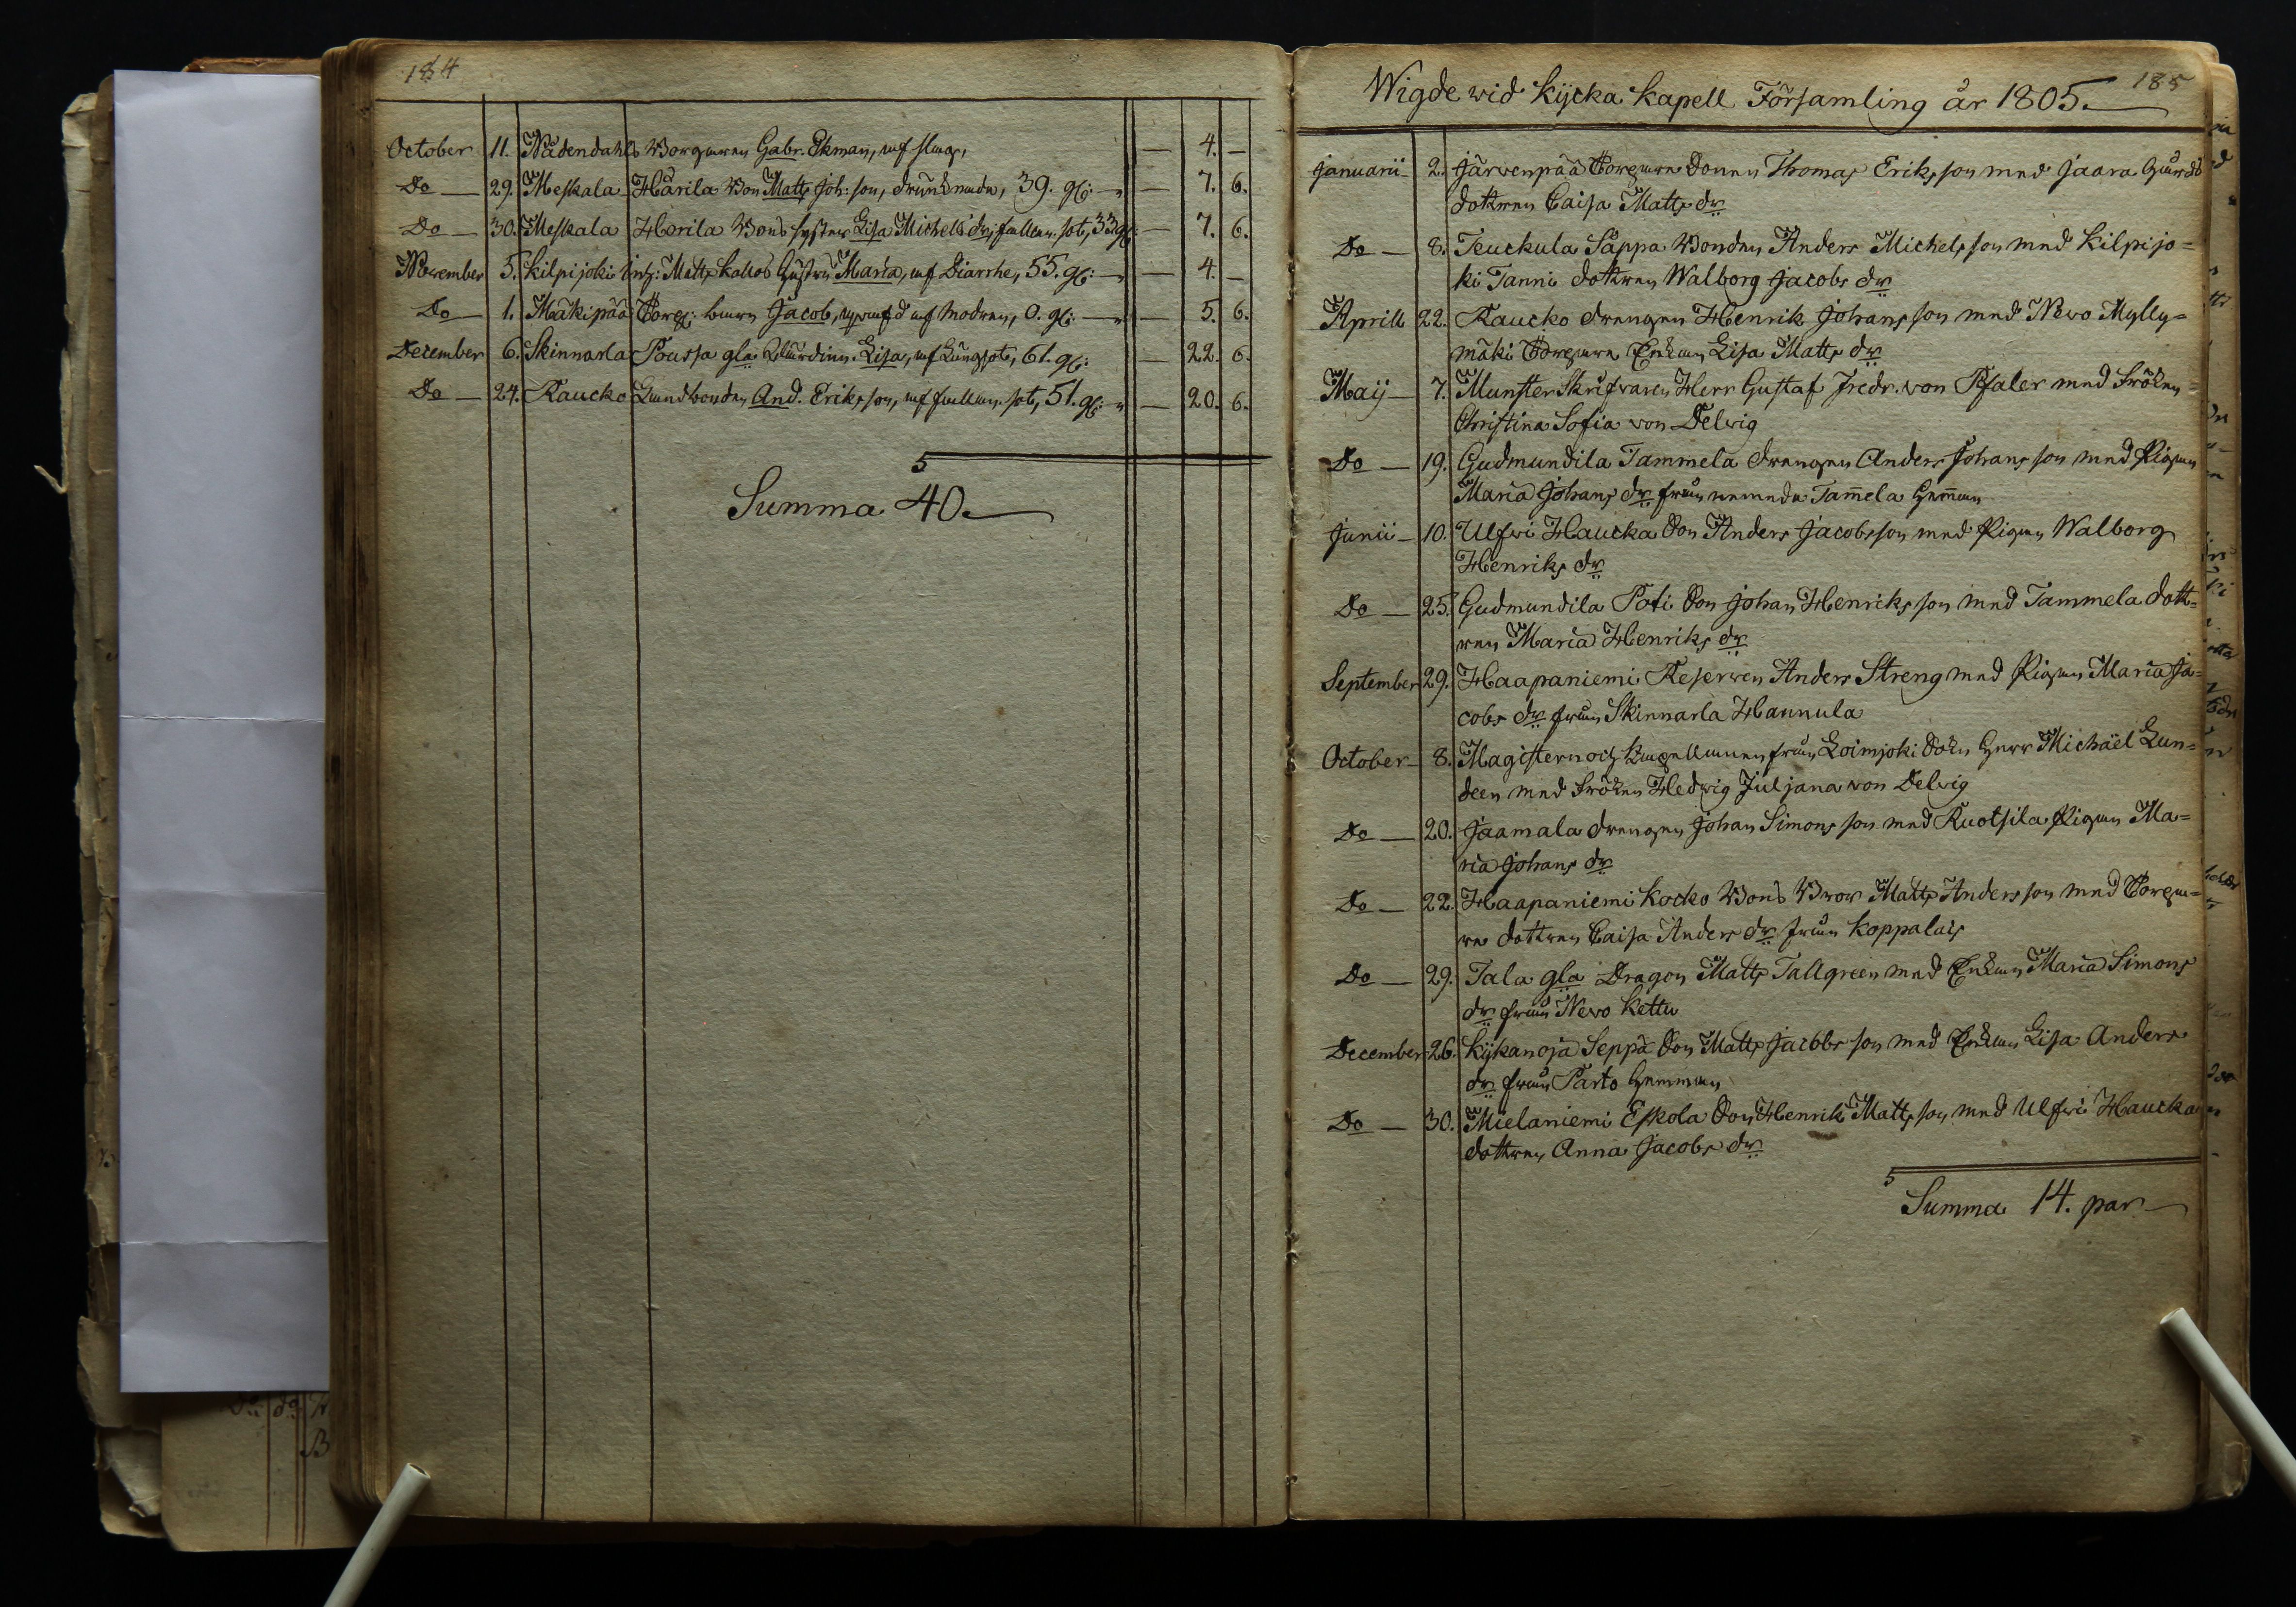 184
October 11. Nådendahls Borgaren Gabr. Ekman, af slag, — 4. —
Do — 29. Meskala Härila Bon Matts Joh: son, drunknade, 39. gl: — 7. 6.
Do — 30. Meskala Horila Bons syster Lisa Michels dr, fallan. sot, 33 gl: — 7. 6.
November 5. Kilpijoki Inh: Matts Kallos Hustru Maria, af Diarrhe, 55. gl: — 4. —
Do — 1. Mäkipää Torp: barn Jacob, af modren, 0. gl: — 5. 6.
December 6. Skinnarla Poussa gla Wärdinn. Lisa, af Lungsot, 61. gl: — 22. 6.
Do — 24. Raucko Landbonden And. Eriksson, af fallan. sot, 51. gl: — 20. 6.
S
Summa 40.
185
Wigde wid Kycka Kapell Församling år 1805.
Januarii — 2. Järvenpää Torpare Sonen Thomas Eriksson med Jaara Gårds
dottren Caisa Matts dr
Do — 8. Teuckula Säppä Bonden Anders Michelsson med Kilpijo=
ki Tanni dottren Walborg Jacobs dr
Aprill 22. Raucko drengen Henrik Johansson med Nevo Mylly=
mäki Torpare Enkan Lisa Matts dr
Maij — 7. Munsterskrifvaren Herr Gustaf Fredr. von Pfaler med Fröken
Christina Sofia von Delvig
Do — 19. Gudmundila Tammela drengen Anders Johansson med Pigan
Maria Johans dr från nemnda Tam̄ela Hem̄an
Junii — 10. Ulfwi Haucka Son Anders Jacobsson med Pigan Walborg
Henriks dr
Do — 25. Gudmundila Poti Son Johan Henriksson med Tammela dott=
ren Maria Henriks dr
September 29. Haapaniemi Reserven Anders Streng med Pigan Maria Ja=
cobs dr från Skinnarla Hannula
October — 8. Magistern och Kapellanen från Loimjoki Sokn Herr Michäel Lun=
deen med Fröken Hedwig Juljana von Delvig
Do — 20. Jaamala drengen Johan Simonsson med Ruotsila Pigan Ma=
ria Johans dr
Do — 22. Haapaniemi Kocko Bons Bror Matts Andersson med Torpa=
re dottren Caisa Anders dr från Koppalais
Do — 29. Tala gla Dragon Matts Tallgreen med Enkan Maria Simons
dr från Nevo Kettu
December 26. Kykanoja Seppä Son Matts Jacobsson med Enkan Lisa Anders
dr från Parto Hemman
Do — 30. Mielaniemi Eskola Son Henrik Mattsson med Ulfwi Haucka
dottren Anna Jacobs dr
S
Summa 14. par